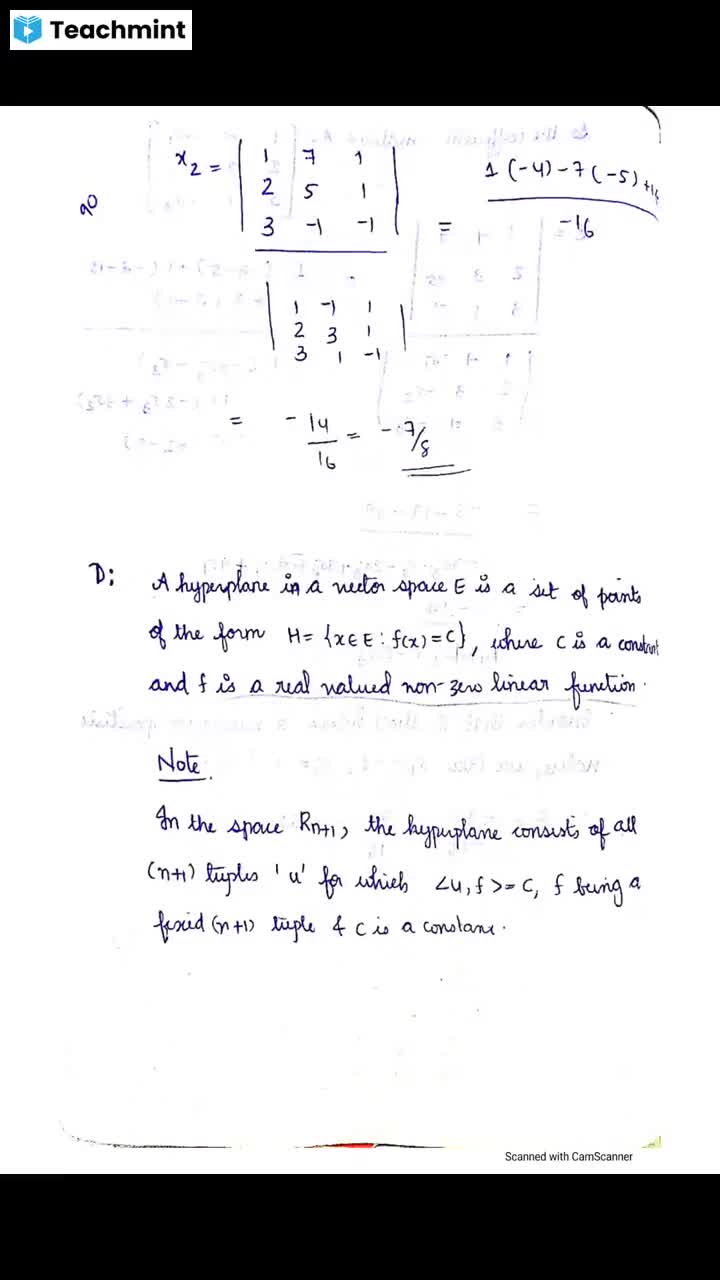 Teachmint
x2 = | 1 7 1 |
| 2 5 1 |
| 3 -1 -1 |
| 1 -1 1 |
| 2 3 1 |
| 3 1 -1 |
= 1(-4) - 7(-5) +
-16
= -14/16 = -7/8
D: A hyperplane in a vector space E is a set of points
of the form H = {x∈E : f(x) = C}, where C is a constant
and f is a real valued non-zero linear function.
Note.
In the space Rn+1, the hyperplane consists of all
(n+1) tuples 'u' for which <u, f> = C, f being a
fixed (n+1) tuple & C is a constant.
Scanned with CamScanner